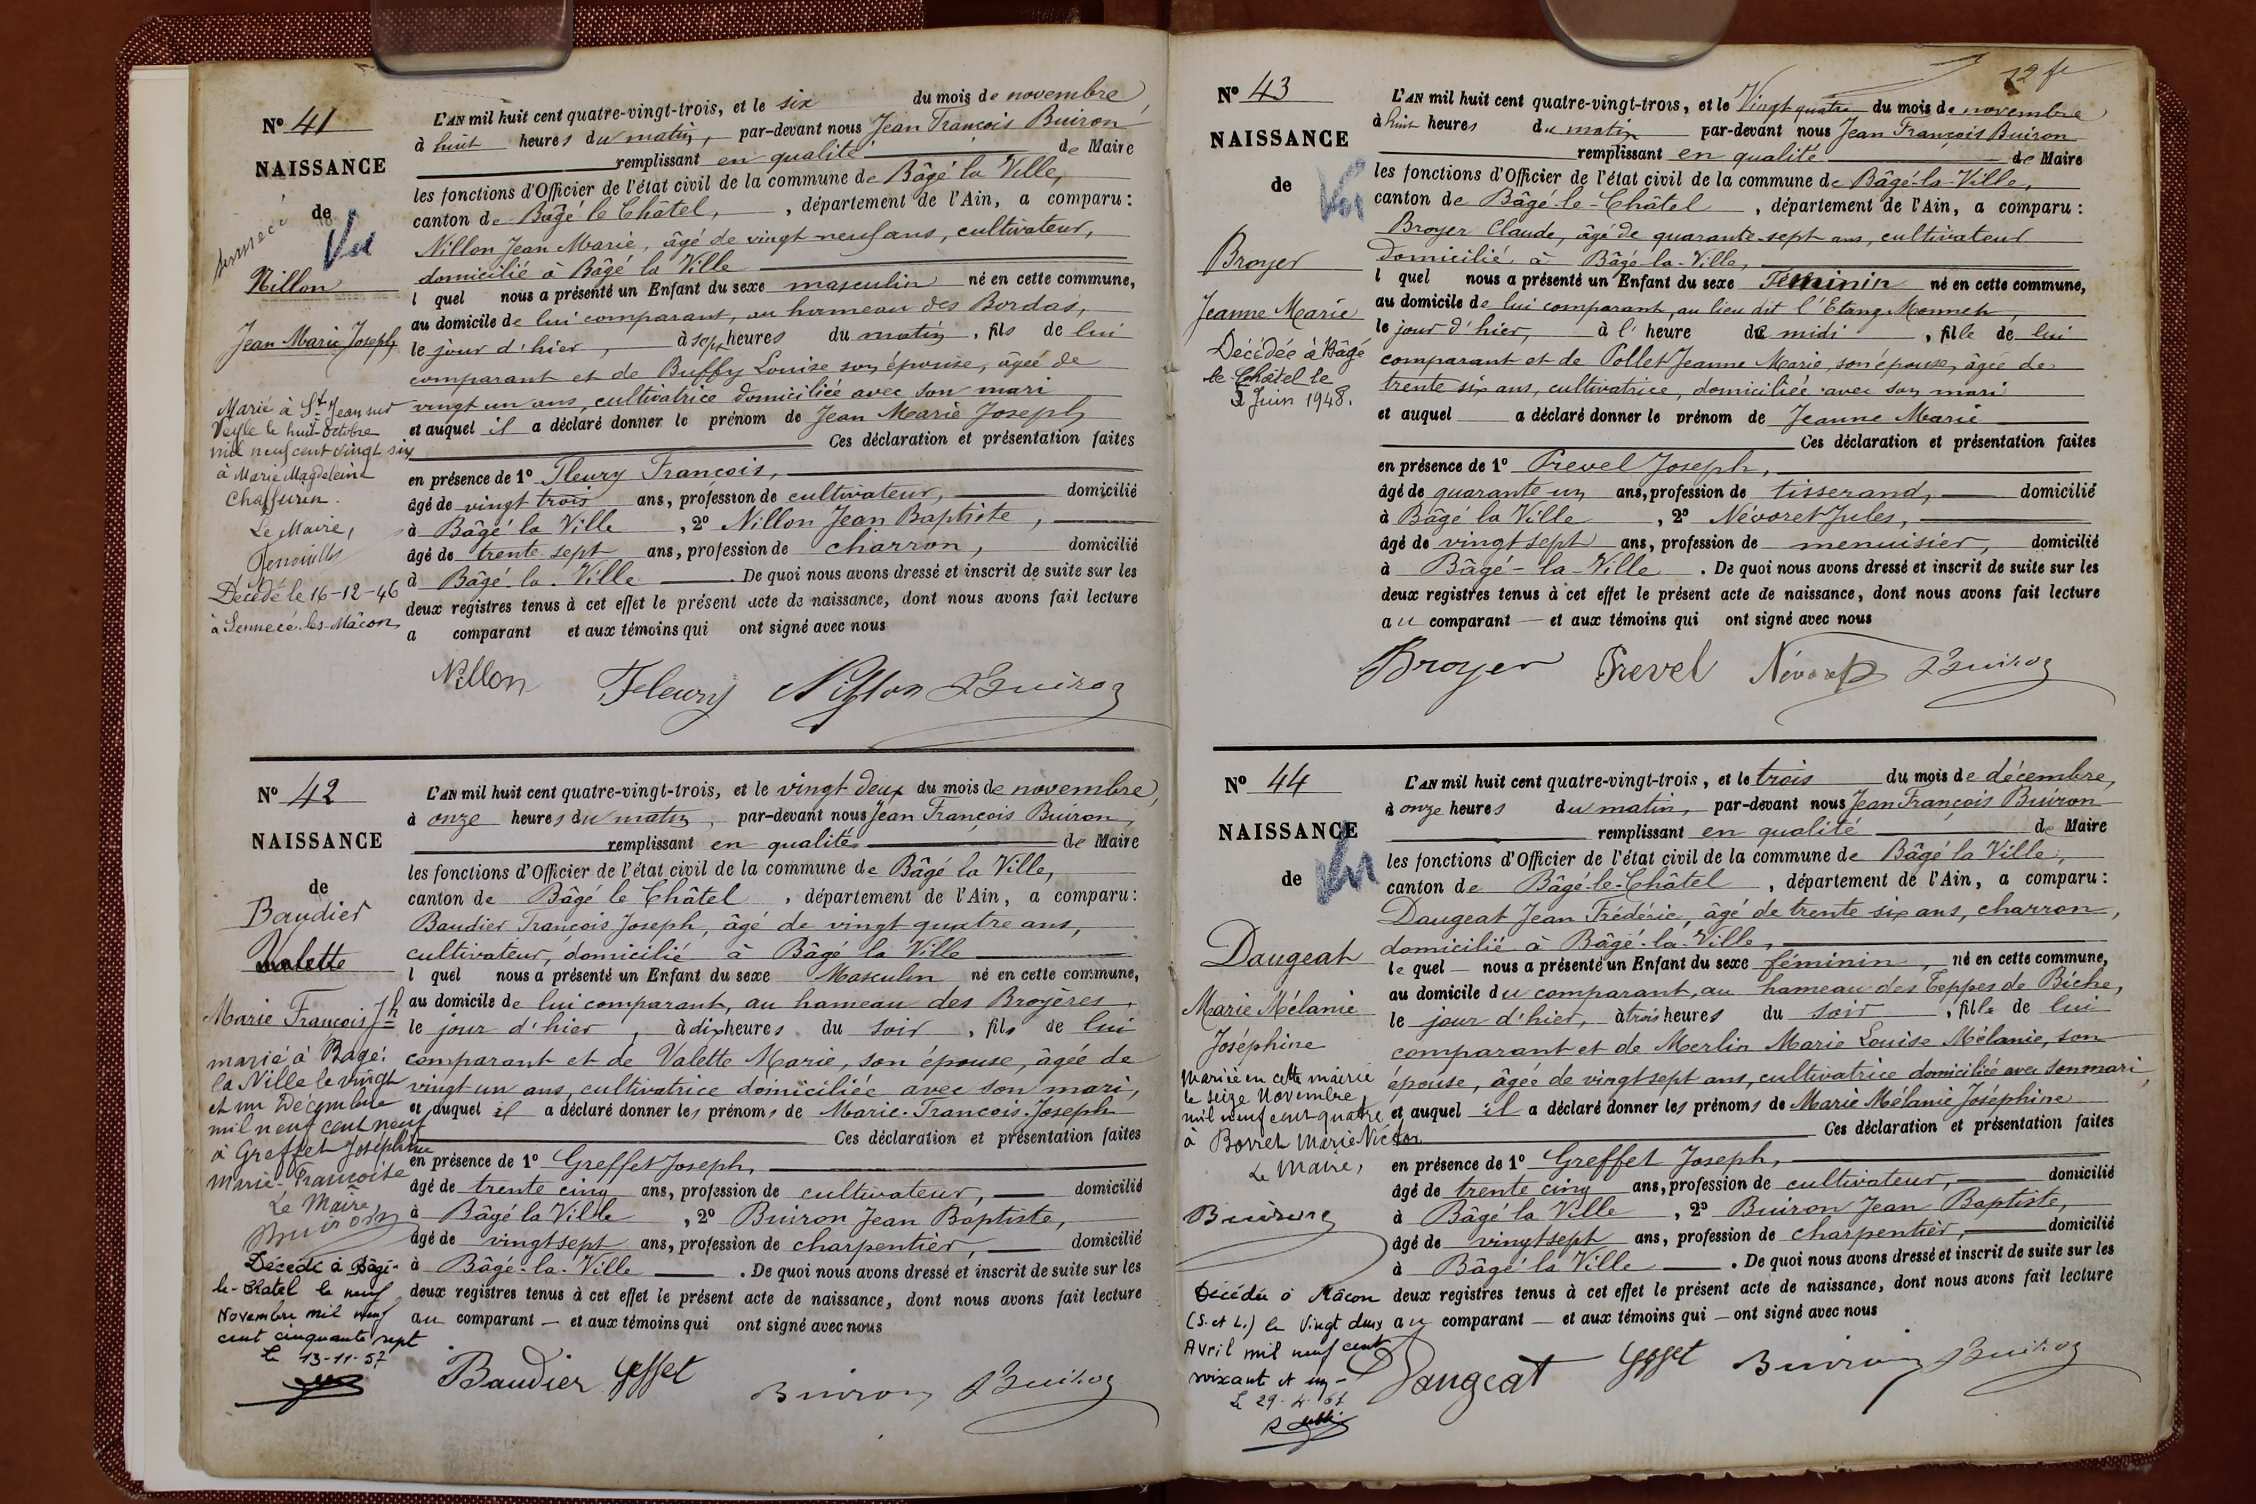 N° 41
NAISSANCE
de
Vu
Nillon
Jean Marie Joseph
Marié à St Jean sur
Veyle le huit Octobre
mil neuf cent vingt six
à Marie Magdeleine
Chaffurin.
Le Maire,
Décédé le 16-12-46
à Sennecé-les-Mâcon
L'AN mil huit cent quatre-vingt-trois, et le six du mois de novembre,
à huit heures du matin, par-devant nous Jean François Buiron
remplissant en qualité de Maire
les fonctions d'Officier de l'état civil de la commune de Bâgé la Ville,
canton de Bâgé le Châtel, , département de l'Ain, a comparu :
Nillon Jean Marie, âgé de vingt neuf ans, cultivateur,
domicilié à Bâgé la Ville
l quel nous a présenté un Enfant du sexe masculin né en cette commune,
au domicile de lui comparant, au hameau des Bordas,
le jour d'hier, à sept heures du matin, fils de lui
comparant et de Buffy Louise son épouse, âgée de
vingt un ans, cultivatrice domiciliée avec son mari
et auquel il a déclaré donner le prénom de Jean Marie Joseph
Ces déclaration et présentation faites
en présence de 1° Fleury François,
âgé de vingt trois ans, profession de cultivateur, domicilié
à Bâgé la Ville , 2° Nillon Jean Baptiste,
âgé de trente sept ans, profession de charron, domicilié
à Bâgé-la-Ville . De quoi nous avons dressé et inscrit de suite sur les
deux registres tenus à cet effet le présent acte de naissance, dont nous avons fait lecture
a comparant et aux témoins qui ont signé avec nous
Nillon Fleury Nillon Buiron
N° 42
NAISSANCE
de
Baudier
Valette
Marie François Jh
marié à Bâgé
la Ville le vingt
et un Décembre
mil neuf cent neuf
à Greffet Joséphine
Marie-Françoise
Le Maire
Buiron
Décédé à Bâgé-
le-Chatel le neuf
Novembre mil neuf
cent cinquante sept
Le 13-11-57
L'AN mil huit cent quatre-vingt-trois, et le vingt deux du mois de novembre,
à onze heures du matin, par-devant nous Jean François Buiron,
remplissant en qualité de Maire
les fonctions d'Officier de l'état civil de la commune de Bâgé la Ville,
canton de Bâgé le Châtel , département de l'Ain, a comparu :
Baudier François Joseph, âgé de vingt quatre ans,
cultivateur, domicilié à Bâgé la Ville
l quel nous a présenté un Enfant du sexe Masculin né en cette commune,
au domicile de lui comparant, au hameau des Broyères,
le jour d'hier, à dix heures du soir, fils de lui
comparant et de Valette Marie, son épouse, âgée de
vingt un ans, cultivatrice domiciliée avec son mari,
et auquel il a déclaré donner les prénoms de Marie-François-Joseph
Ces déclaration et présentation faites
en présence de 1° Greffet Joseph,
âgé de trente cinq ans, profession de cultivateur, domicilié
à Bâgé la Ville , 2° Buiron Jean Baptiste,
âgé de vingt sept ans, profession de charpentier, domicilié
à Bâgé-la-Ville . De quoi nous avons dressé et inscrit de suite sur les
deux registres tenus à cet effet le présent acte de naissance, dont nous avons fait lecture
au comparant — et aux témoins qui ont signé avec nous
Baudier Greffet Buiron Buiron
N° 43
NAISSANCE
de
Vu
Broyer
Jeanne Marie
Décédée à Bâgé
le Châtel le
2 Juin 1948.
L'AN mil huit cent quatre-vingt-trois, et le Vingt quatre du mois de novembre
à huit heures du matin par-devant nous Jean François Buiron
remplissant en qualité de Maire
les fonctions d'Officier de l'état civil de la commune de Bâgé-la-Ville,
canton de Bâgé-le-Châtel , département de l'Ain, a comparu :
Broyer Claude, âgé de quarante sept ans, cultivateur
domicilié à Bâgé-la-Ville,
l quel nous a présenté un Enfant du sexe Féminin né en cette commune,
au domicile de lui comparant, au lieu dit l'Etang
le jour d'hier, à l' heure de midi , fille de lui
comparant et de Pollet Jeanne Marie, son épouse, âgée de
trente six ans, cultivatrice, domiciliée avec son mari
et auquel a déclaré donner le prénom de Jeanne Marie
Ces déclaration et présentation faites
en présence de 1° Prevel Joseph,
âgé de quarante un ans, profession de tisserand, domicilié
à Bâgé la Ville , 2° Névoret Jules,
âgé de vingt sept ans, profession de menuisier, domicilié
à Bâgé-la-Ville . De quoi nous avons dressé et inscrit de suite sur les
deux registres tenus à cet effet le présent acte de naissance, dont nous avons fait lecture
au comparant — et aux témoins qui ont signé avec nous
Broyer Prevel Névoret Buiron
N° 44
NAISSANCE
de
Vu
Daugeat
Marie Mélanie
Joséphine
Mariée en cette mairie
le seize Novembre
mil neuf cent quatre
à Bovret Marie Victor
Le Maire,
Buiron
Décédée à Mâcon
(S. et L.) le vingt deux
Avril mil neuf cent
soixante et un -
Le 29-4-61
L'AN mil huit cent quatre-vingt-trois, et le trois du mois de décembre,
à onze heures du matin, par-devant nous Jean François Buiron
remplissant en qualité de Maire
les fonctions d'Officier de l'état civil de la commune de Bâgé la Ville,
canton de Bâgé-le-Châtel , département de l'Ain, a comparu :
Daugeat Jean Frédéric, âgé de trente six ans, charron,
domicilié à Bâgé-la-Ville,
le quel — nous a présenté un Enfant du sexe féminin, né en cette commune,
au domicile du comparant, au hameau des Teppes de Biche,
le jour d'hier, à trois heures du soir , fille de lui
comparant et de Merlin Marie Louise Mélanie, son
épouse, âgée de vingt sept ans, cultivatrice domiciliée avec son mari,
et auquel il a déclaré donner les prénoms de Marie Mélanie Joséphine
Ces déclaration et présentation faites
en présence de 1° Greffet Joseph,
âgé de trente cinq ans, profession de cultivateur, domicilié
à Bâgé la Ville , 2° Buiron Jean Baptiste,
âgé de vingt sept ans, profession de charpentier, domicilié
à Bâgé la Ville . De quoi nous avons dressé et inscrit de suite sur les
deux registres tenus à cet effet le présent acte de naissance, dont nous avons fait lecture
au comparant — et aux témoins qui — ont signé avec nous
Daugeat Greffet Buiron Buiron